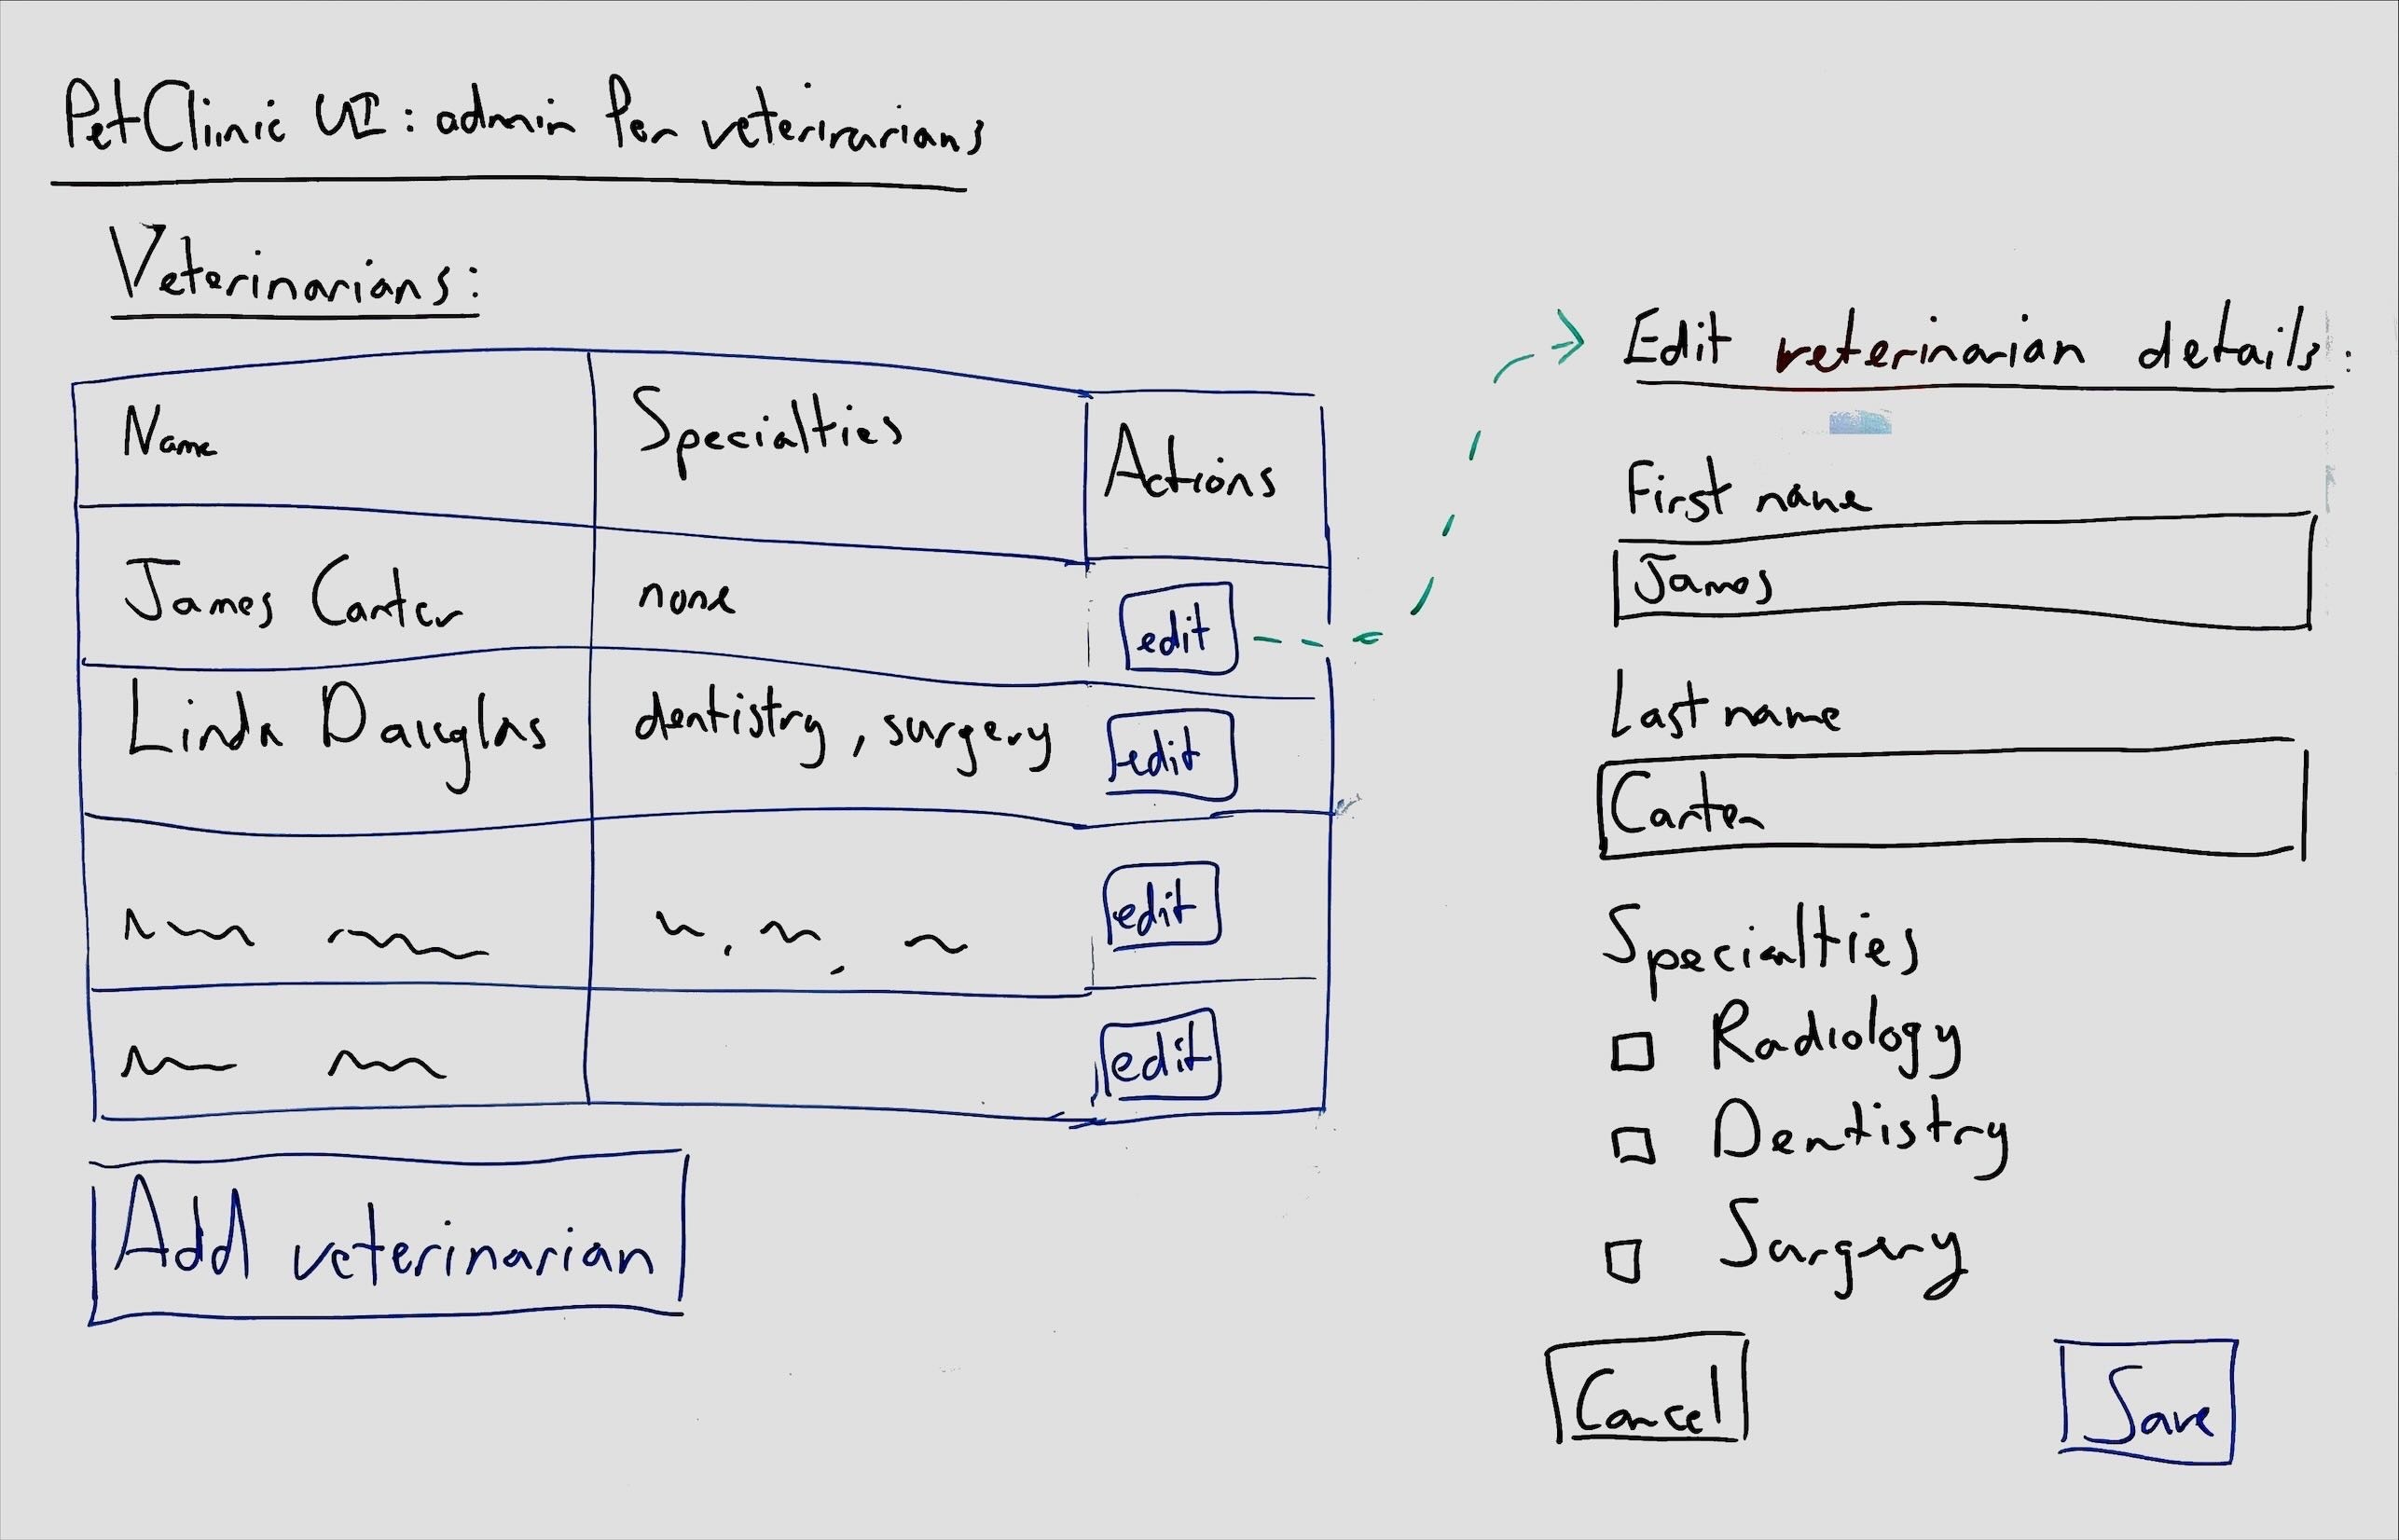 PetClinic UI: admin for veterinarians
Veterinarians:
Name Specialties Actions
James Carter none edit
Linda Douglas dentistry, surgery edit
edit
edit
Add veterinarian
Edit veterinarian details:
First name
James
Last name
Carter
Specialties
Radiology
Dentistry
Surgery
Cancel Save